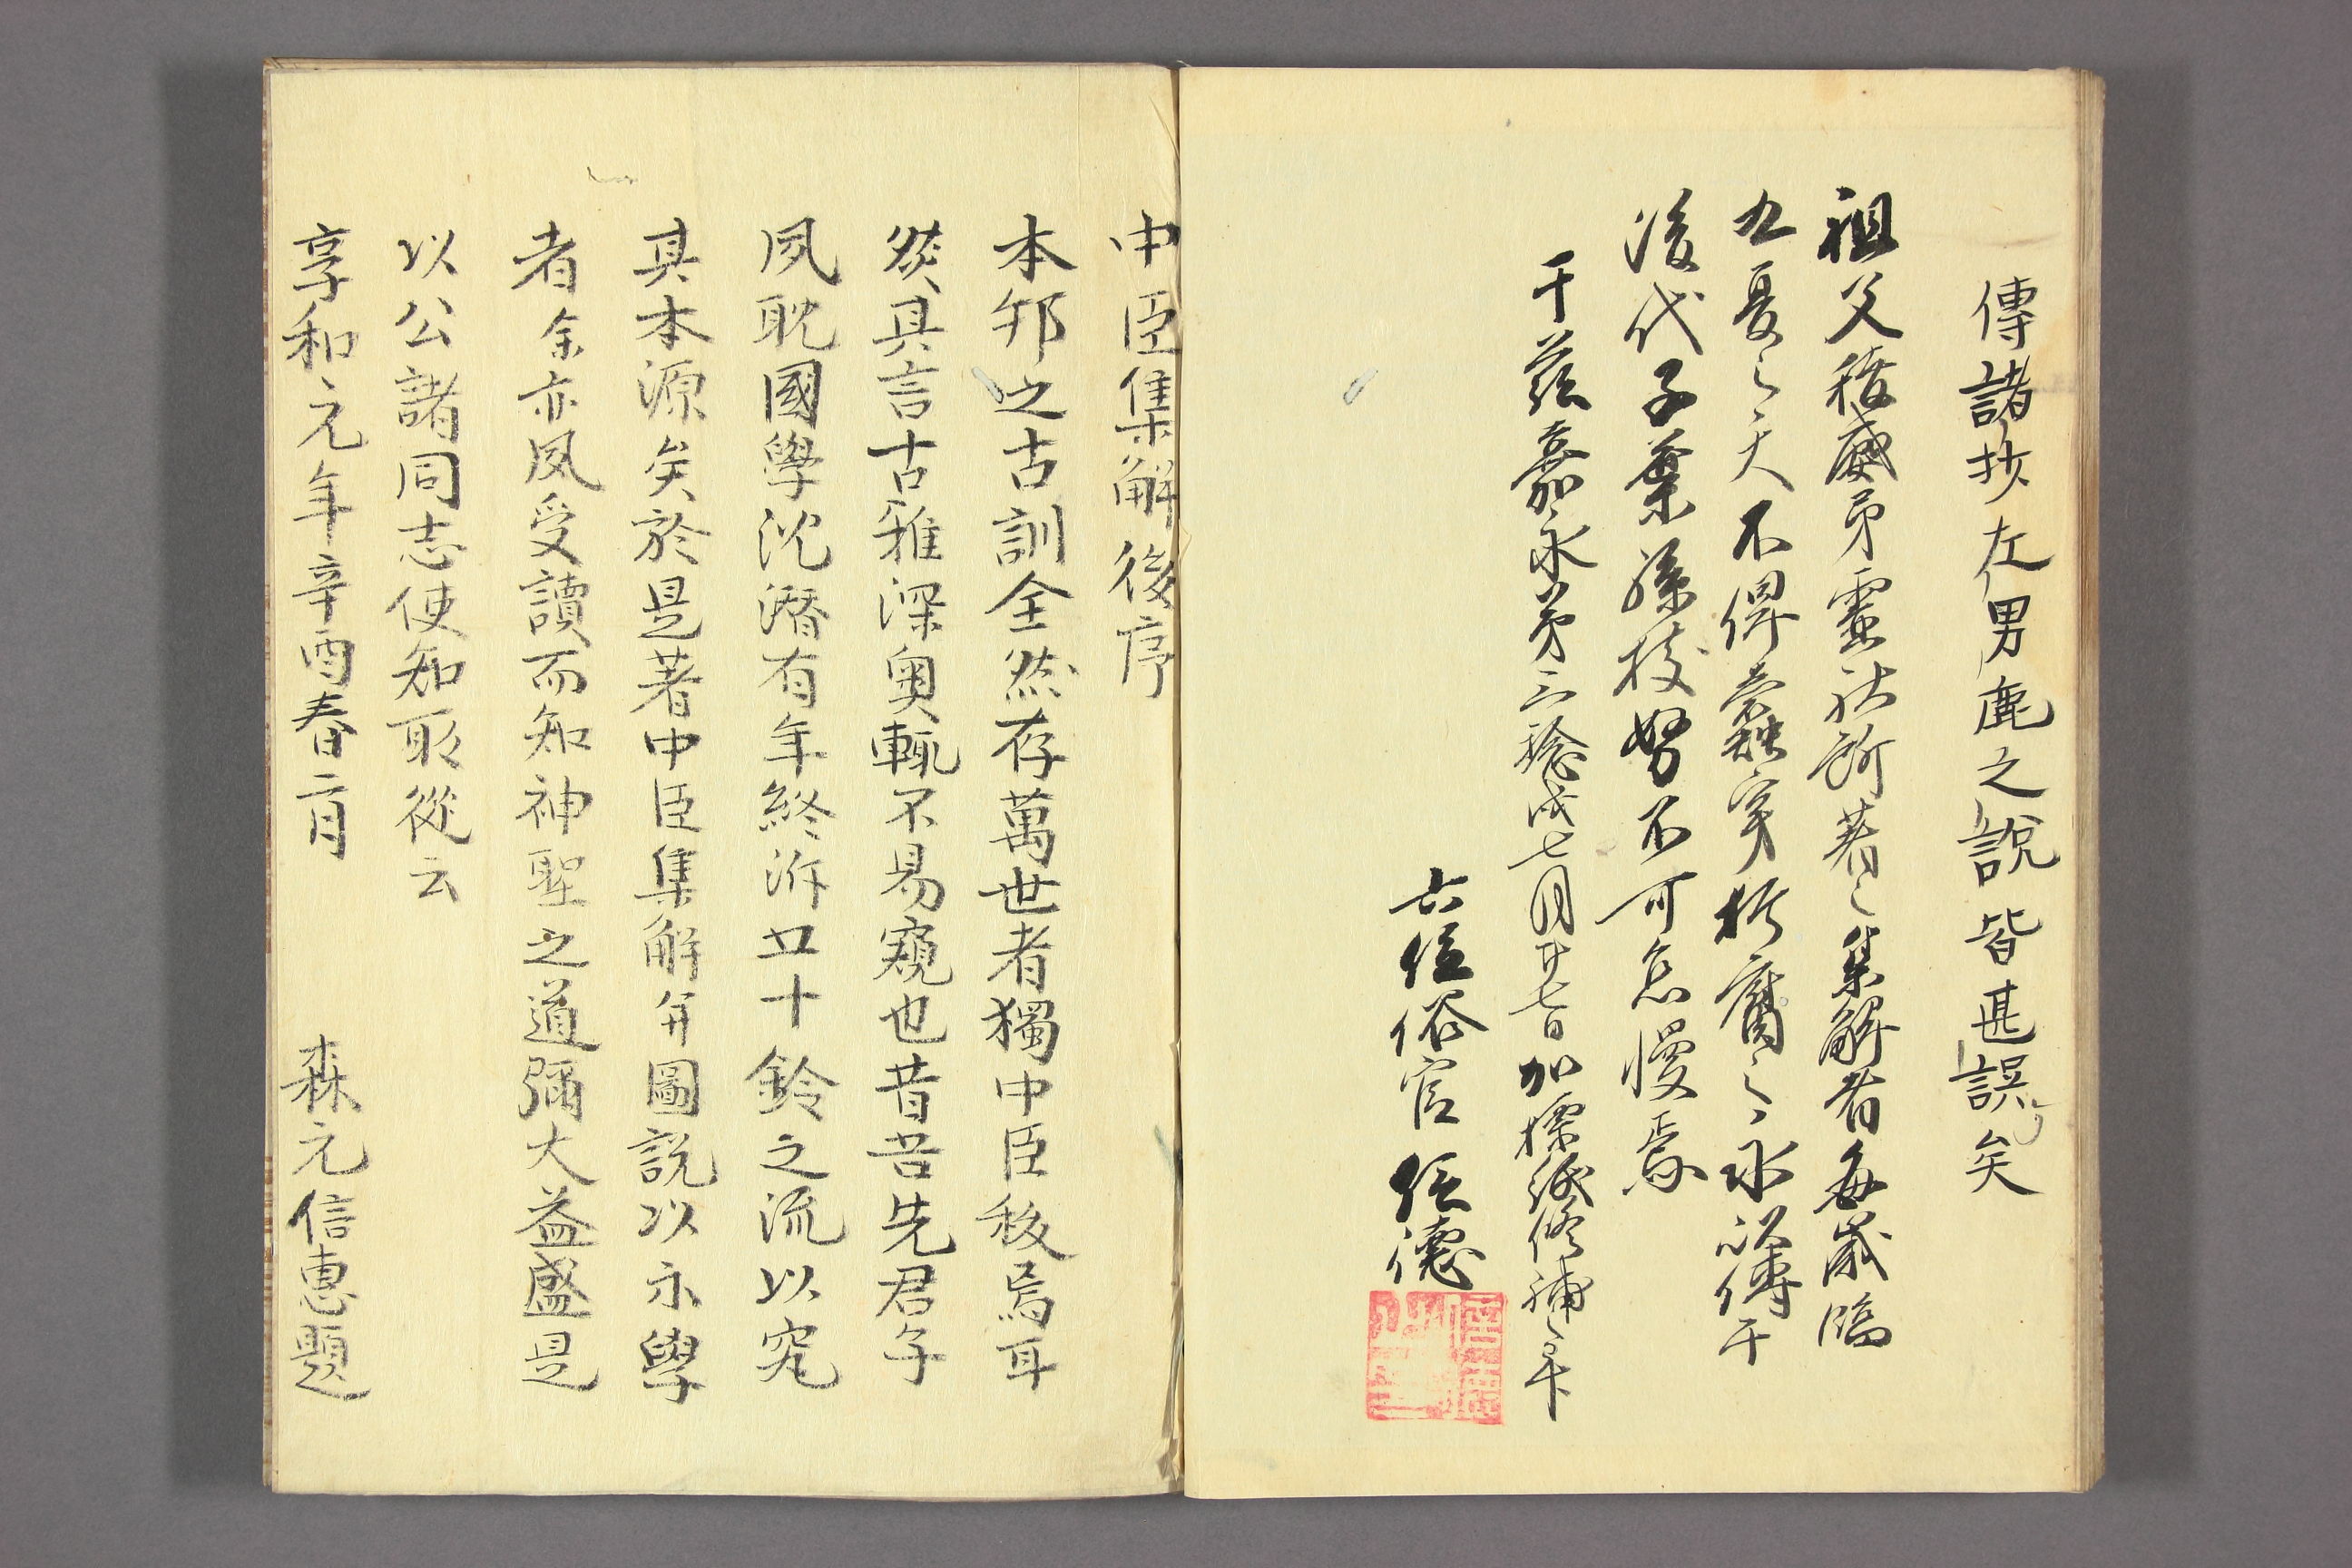 傳諸抄左男鹿之說皆甚誤矣
祖父稜威弟靈社所著之集解者每歲臨
九夏之天不俾蠹穿朽腐之永以傳于
後代子葉孫枝努不可怠慢焉
于茲嘉永第三稔戊七月廿七日加標紙修補之畢
六位俗官 信德
中臣集解後序
本邦之古訓全然存萬世者獨中臣祓焉耳
然其言古雅深奧輒不易窺也昔吾先君子
夙耽國學沈潛有年終泝五十鈴之流以究
其本源矣於是著中臣集解并圖說以示學
者余亦夙受讀而知神聖之道彌大益盛是
以公諸同志使知取從云
享和元年辛酉春二月 森元信惠題